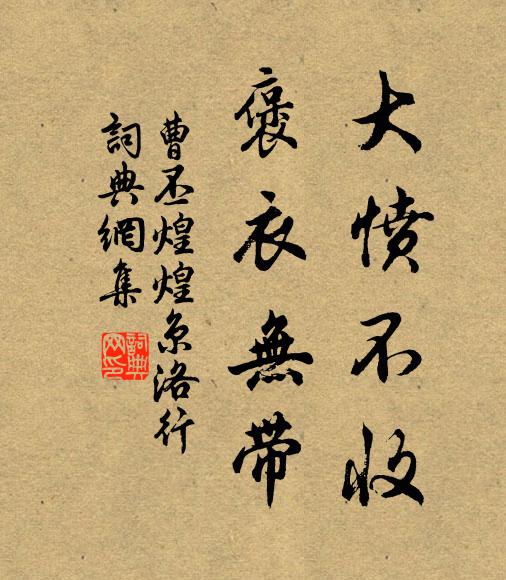 大憤不收
褒衣無帶
曹丕煌煌京洛行
詞典網集
詞典網印